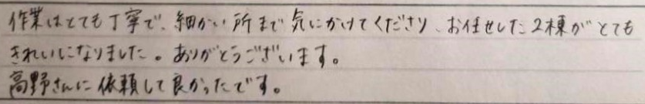 作業はとても丁寧で、細かい所まで気にかけてくださり、お任せした2棟がとても
きれいになりました。ありがとうございます。
高野さんに依頼して良かったです。